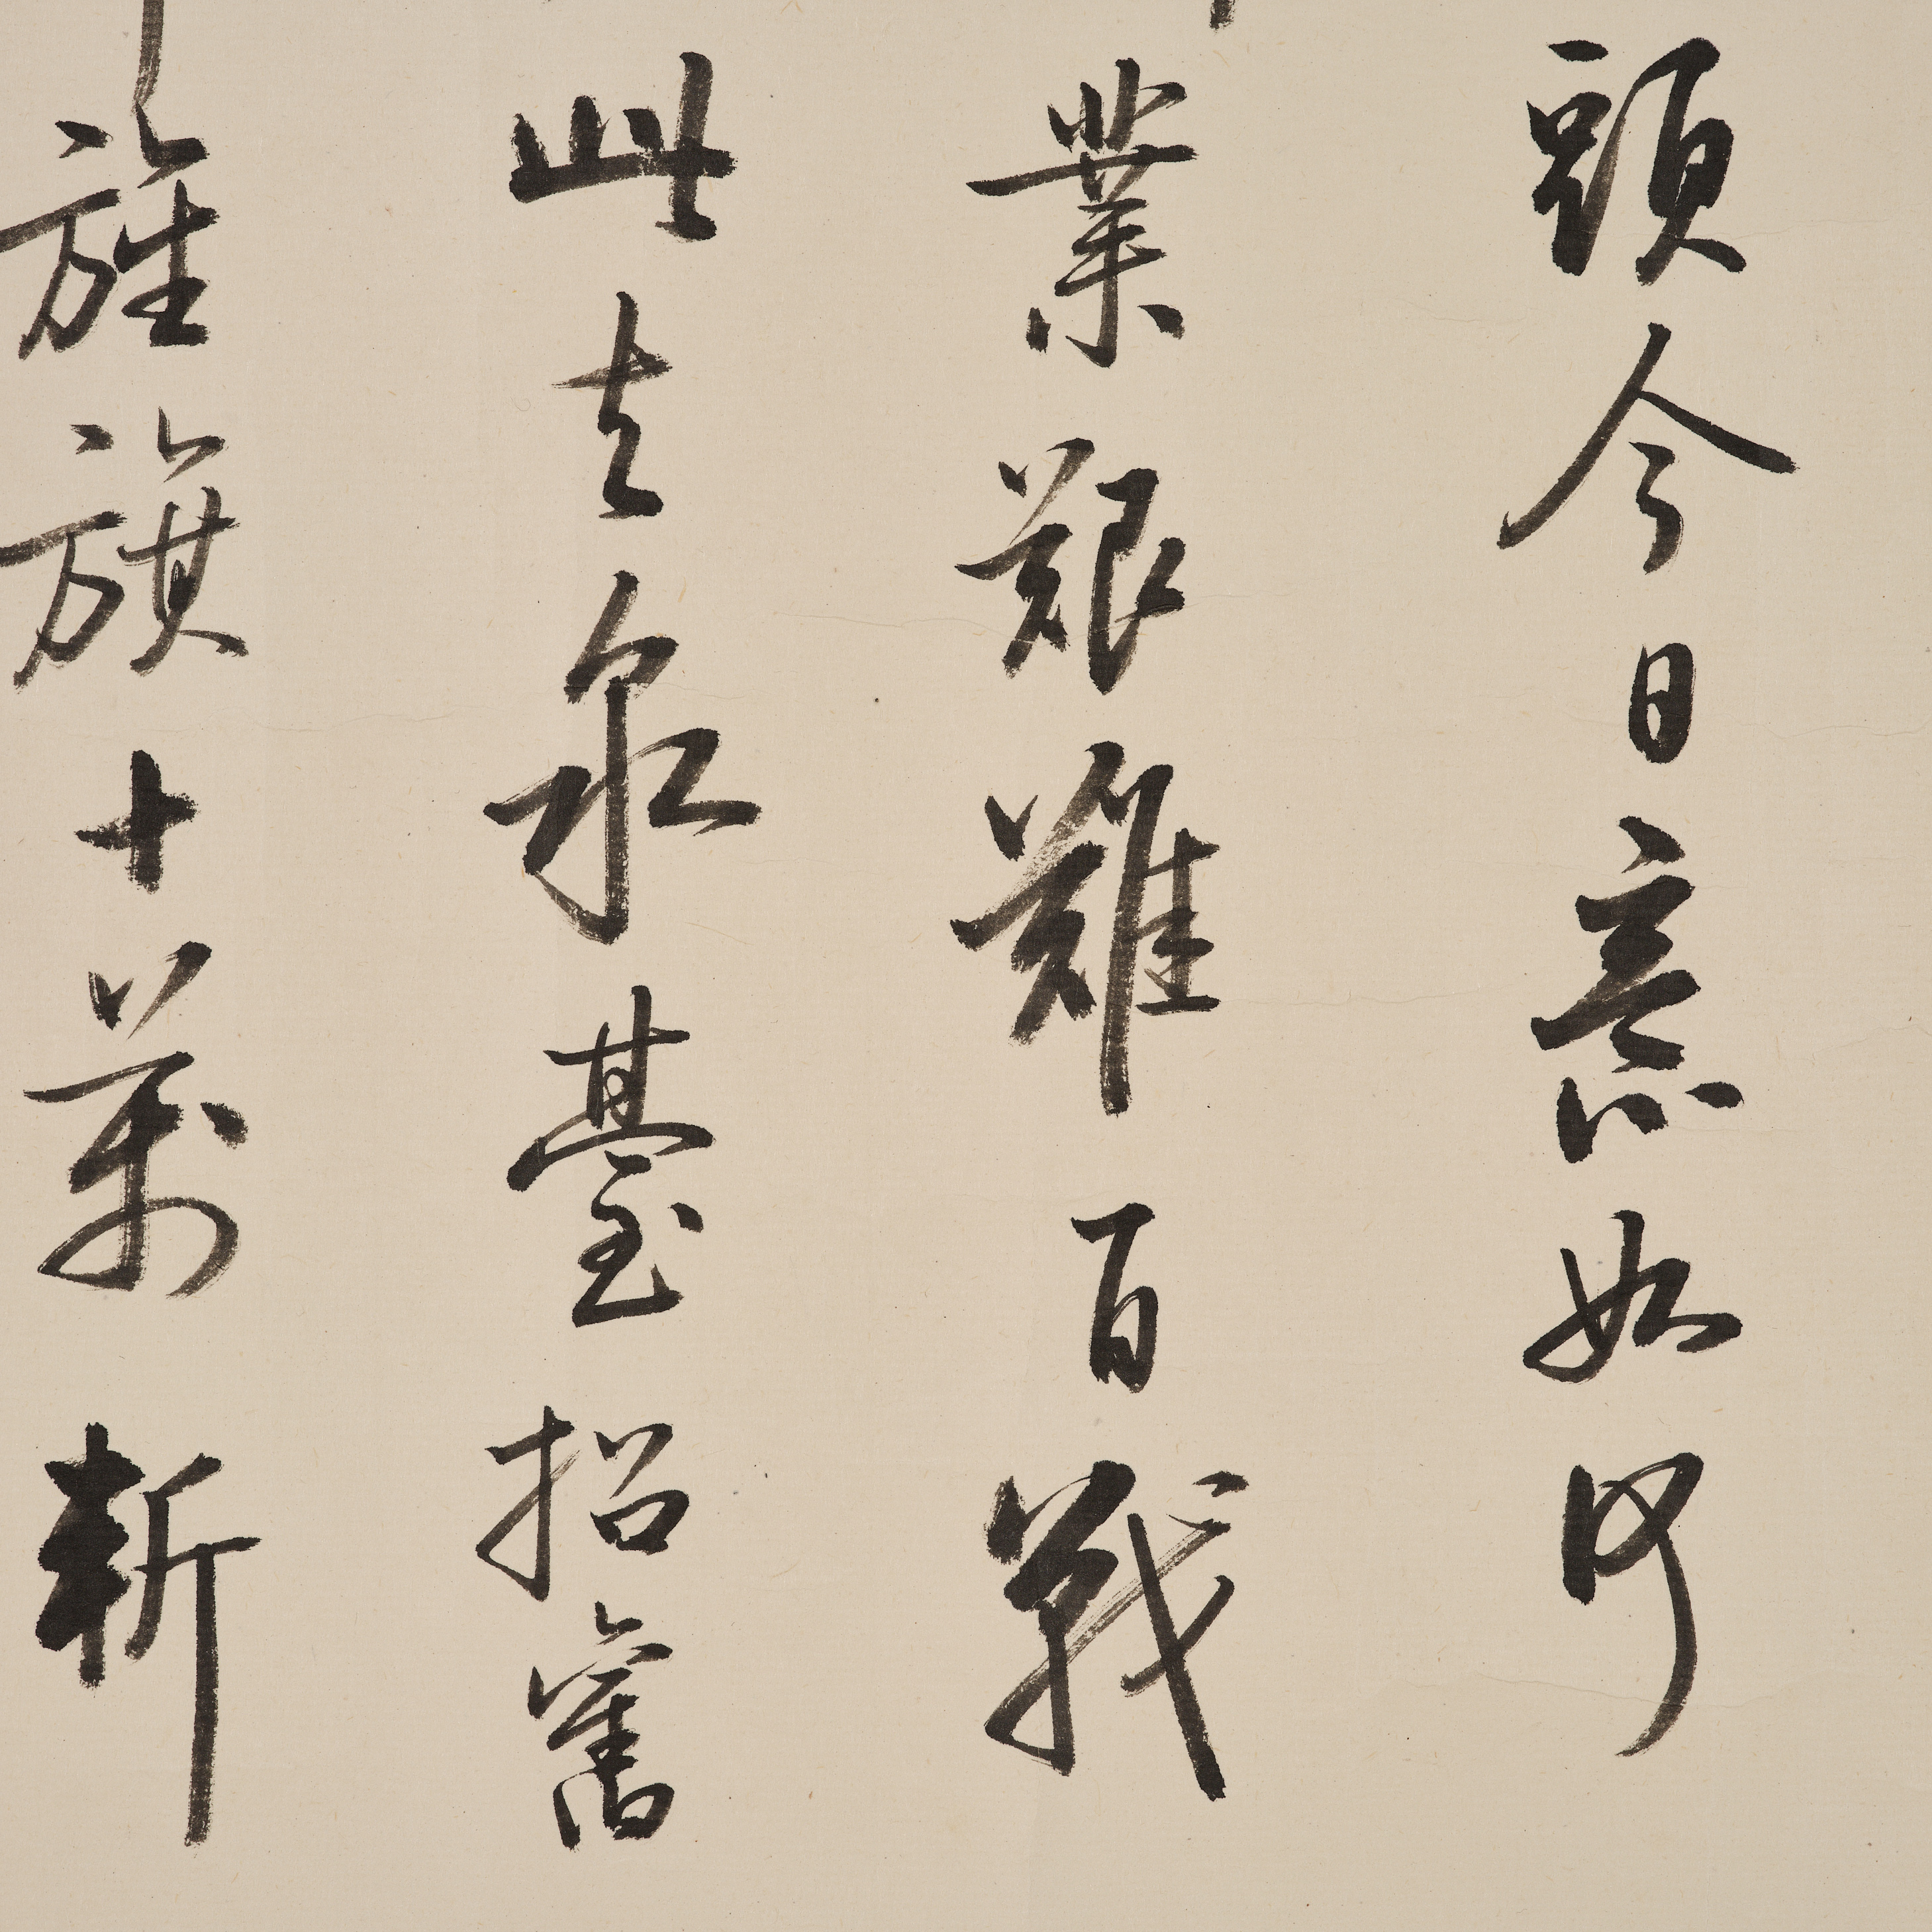 頭今日意如何
業艱難百戰
此去泉臺招舊
旌旗十萬斬